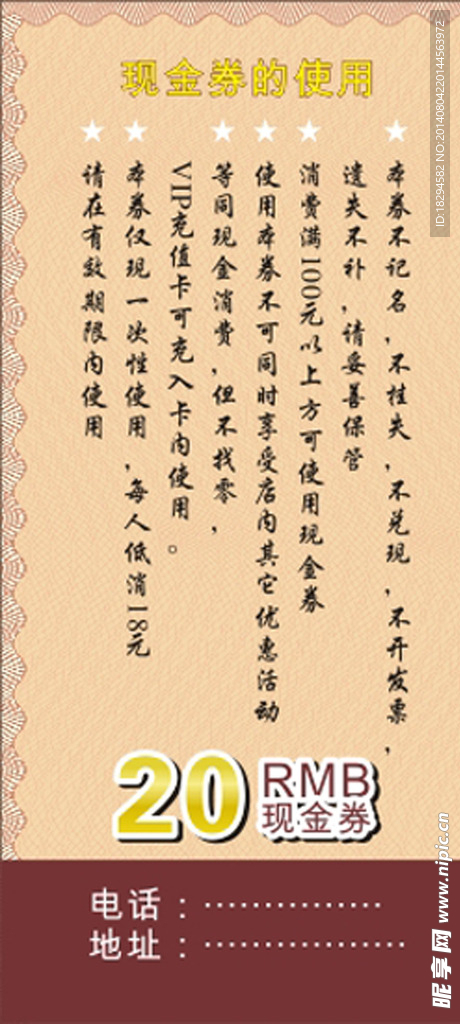 现金券的使用
★本券不记名,不挂失,不兑现,不开发票,
遗失不补,请妥善保管
★消费满100元以上方可使用现金券
★使用本券不可同时享受店内其它优惠活动
★等同现金消费,但不找零,
VIP充值卡可充入卡内使用。
★本券仅现一次性使用,每人低消18元
★请在有效期限内使用
20 RMB
现金券
电话:··············
地址:················
ID:18294582 NO:20140804220144563972
昵享网 www.nipic.cn